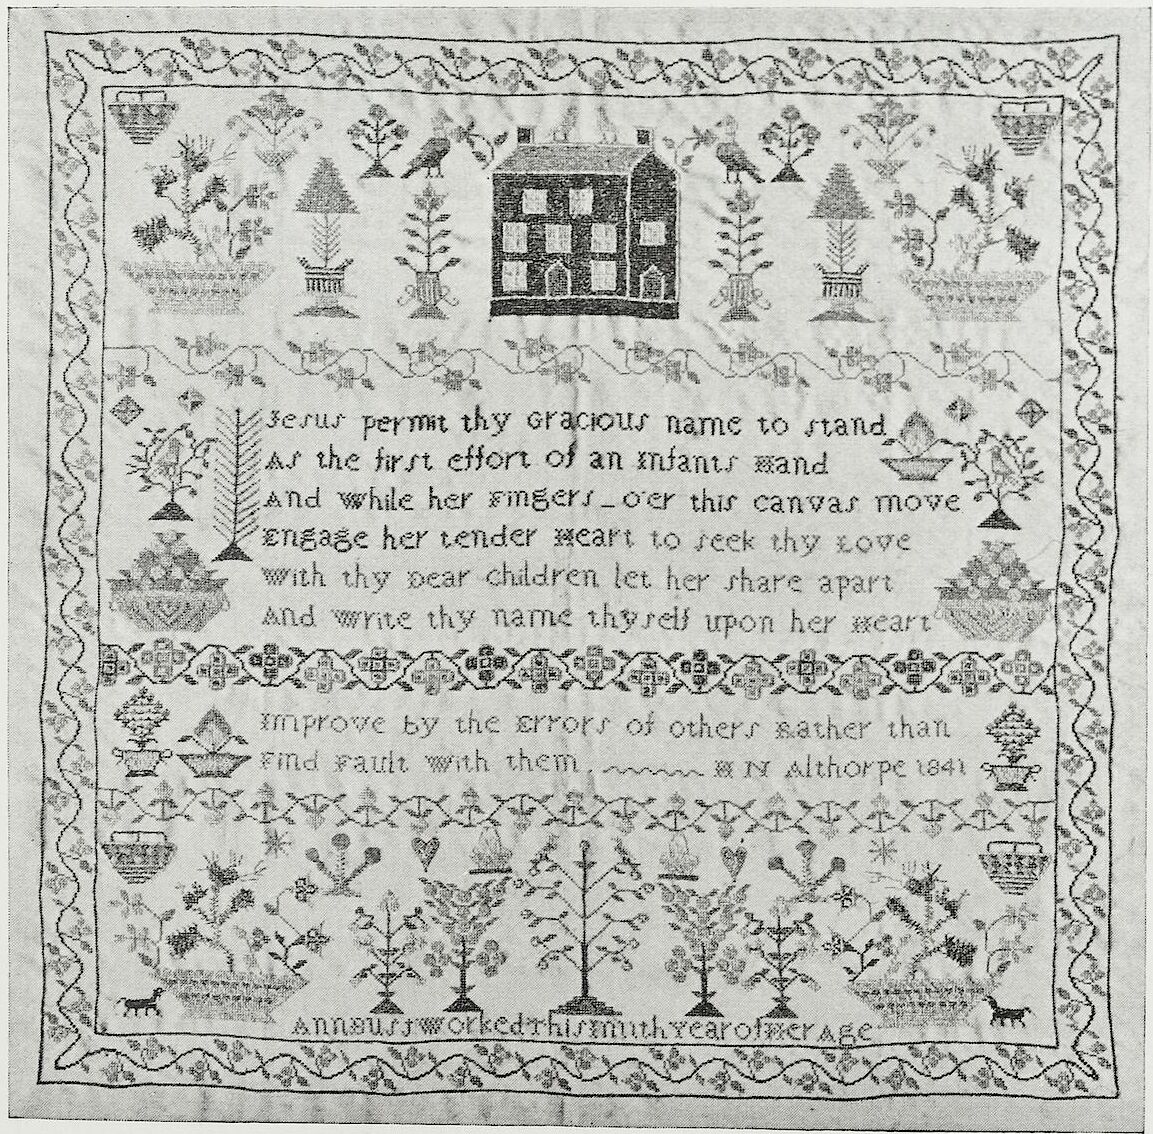 Jesus permit thy Gracious name to stand
As the first effort of an Infants Hand
And While her Fingers_o'er this canvas move
Engage her tender Heart to seek thy Love
With thy Dear children let her share apart
And Write thy name thyself upon her Heart
Improve by the Errors of others Rather than
Find Fault With them H N Althorpe 1841
Ann Bust Worked This in 11th Year of Her Age